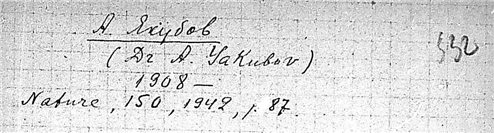 А. Якубов 532
(Dr A. Yakubov)
1908 —
Nature, 150, 1942, p. 87.